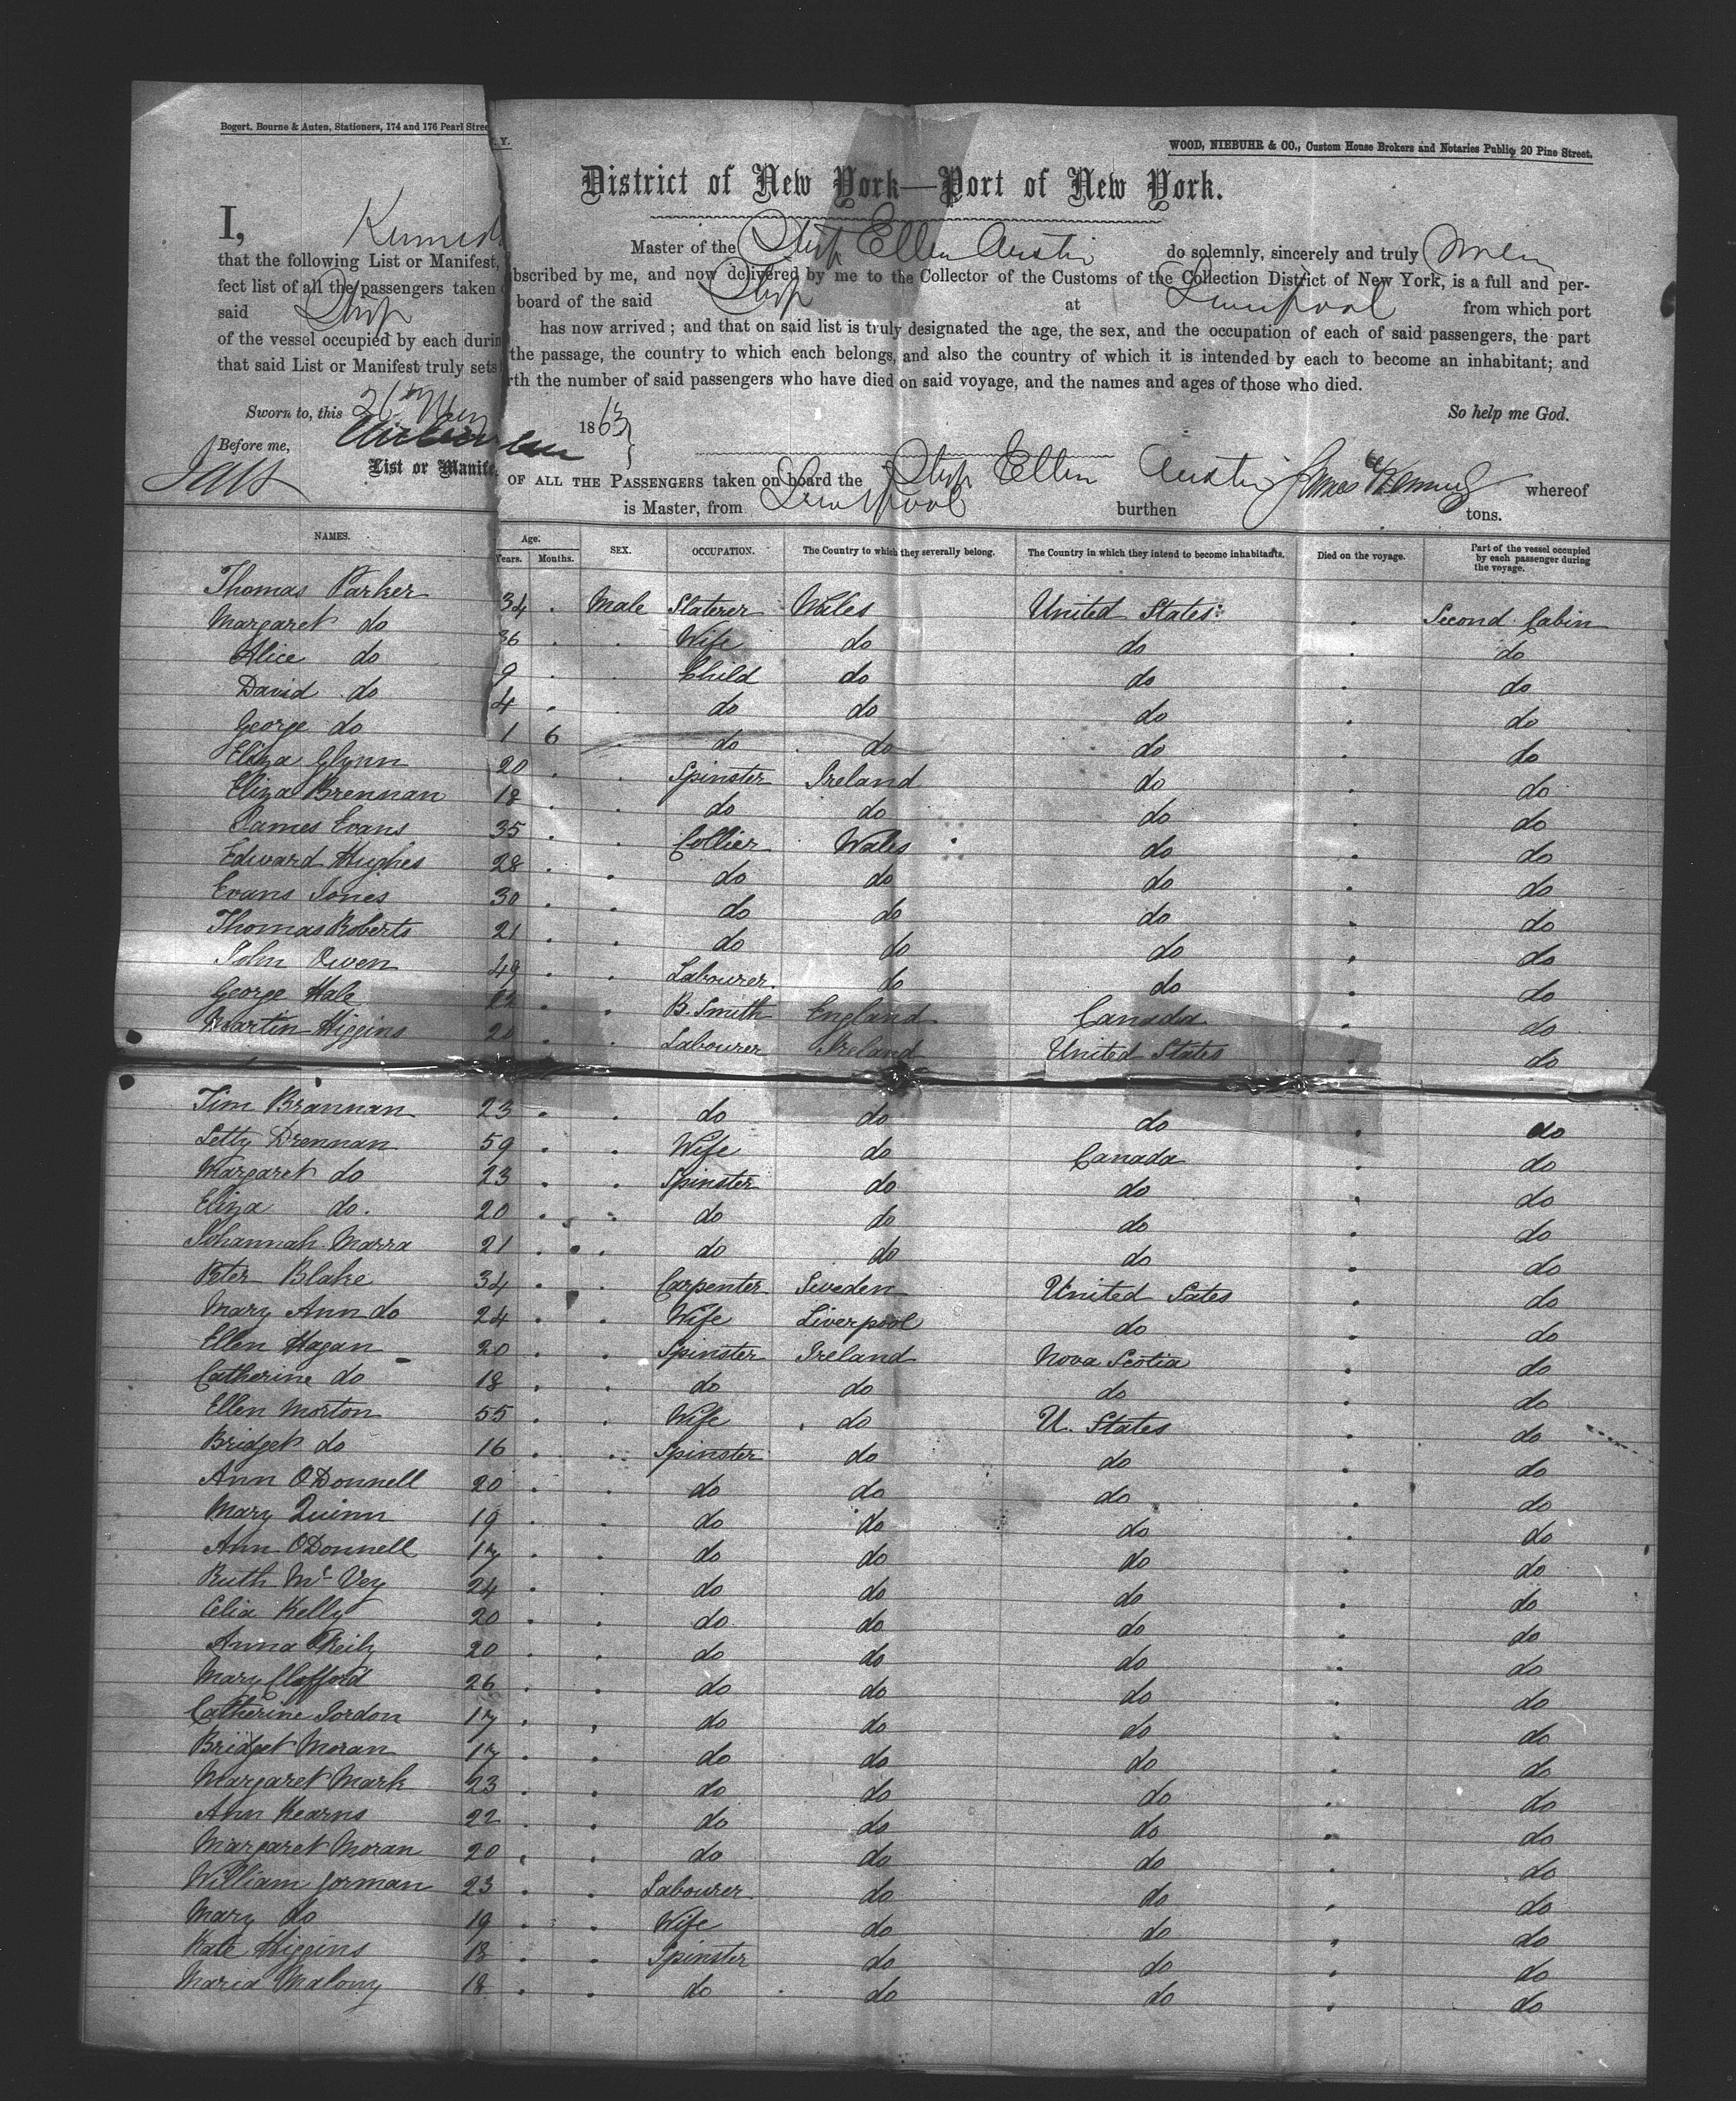 Bogert, Bourne & Auten, Stationers, 174 and 176 Pearl Stree Y.
WOOD, NIEBUHR & CO., Custom House Brokers and Notaries Public, 20 Pine Street.
District of New York—Port of New York.
I, Master of the Ship Ellen Austin do solemnly, sincerely and truly
that the following List or Manifest, bscribed by me, and now delivered by me to the Collector of the Customs of the Collection District of New York, is a full and per-
fect list of all the passengers taken board of the said Ship at Liverpool from which port
said Ship has now arrived; and that on said list is truly designated the age, the sex, and the occupation of each of said passengers, the part
of the vessel occupied by each durin the passage, the country to which each belongs, and also the country of which it is intended by each to become an inhabitant; and
that said List or Manifest truly sets rth the number of said passengers who have died on said voyage, and the names and ages of those who died.
So help me God.
Sworn to, this 26th 1863
Before me,
List or Manife OF ALL THE PASSENGERS taken on board the Ship Ellen Austin whereof
James is Master, from Liverpool burthen tons.
NAMES. Age. Years. Months. SEX. OCCUPATION. The Country to which they severally belong. The Country in which they intend to become inhabitants. Died on the voyage. Part of the vessel occupied by each passenger during the voyage.
Thomas Parker 34 . Male Slaterer Wales United States: . Second Cabin
Margaret do 36 . . Wife do do . do
Alice do 9 . . Child do do . do
David do 4 . . do do do . do
George do 1 6 . do do do . do
Eliza Glynn 20 . . Spinster Ireland do . do
Eliza Brennan 18 . . do do do . do
James Evans 35 . . Collier Wales do . do
Edward Hughes 28 . . do do do . do
Evans Jones 30 . . do do do . do
Thomas Roberts 21 . . do do do . do
John Owen 49 . . Labourer do do . do
George Hale 22 . . B. Smith England Canada . do
Martin Higgins 20 . . Labourer Ireland United States . do
Tim Brannan 23 . . do do do . do
Letty Drennan 59 . . Wife do Canada . do
Margaret do 23 . . Spinster do do . do
Eliza do. 20 . . do do do . do
Johannah Marra 21 . . do do do . do
Peter Blake 34 . . Carpenter Sweden United Sates . do
Mary Ann do 24 . . Wife Liverpool do . do
Ellen Hagan 20 . . Spinster Ireland Nova Scotia . do
Catherine do 18 . . do do do . do
Ellen Morton 55 . . Wife do U. States . do
Bridget do 16 . . Spinster do do . do
Ann ODonnell 20 . . do do do . do
Mary Quinn 19 . . do do do . do
Ann ODonnell 17 . . do do do . do
Ruth Mc Vey 24 . . do do do . do
Celia Kelly 20 . . do do do . do
Anna Reily 20 . . do do do . do
Mary Clofford 26 . . do do do . do
Catherine Jordon 17 . . do do do . do
Bridget Moran 17 . . do do do . do
Margaret Mark 23 . . do do do . do
Ann Kearns 22 . . do do do . do
Margaret Moran 20 . . do do do . do
William Gorman 23 . . Labourer do do . do
Mary do 19 . . Wife do do . do
Kate Higgins 18 . . Spinster do do . do
Maria Malony 18 . . do do do . do